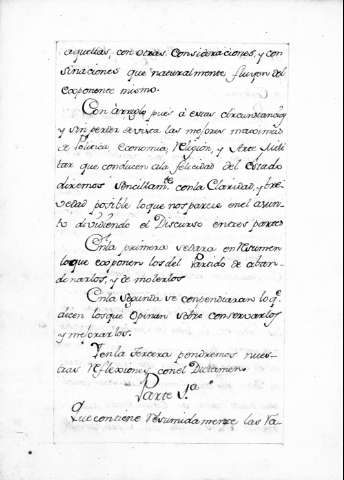 aquellas, con otras Consideraciones, y con
sinaciones que naturalmente fluyen del
Exponente mismo.
Con arreglo pues á estas circunstancias
y sin perder de vista las mejores maximas
de Politica, Economia, Religion, y Arte Mili
tar que conducen á la felicidad del Estado
diremos sencillamte. con la Claridad, y bre
vedad posible lo que nos parece en el asun
to dividiendo el Discurso en tres partes
En la primera se dara en Resumen
lo que exponen los del Partido de aban
donarlos, y demolerlos
En la segunda se compendiaran lo q.e
dicen los que Opinan sobre conservarlos
y mejorarlos.
Y en la Tercera pondremos nues
tras Reflexiones con el Dictamen.
Parte 1.a
Que contiene Resumidamente las Ra-